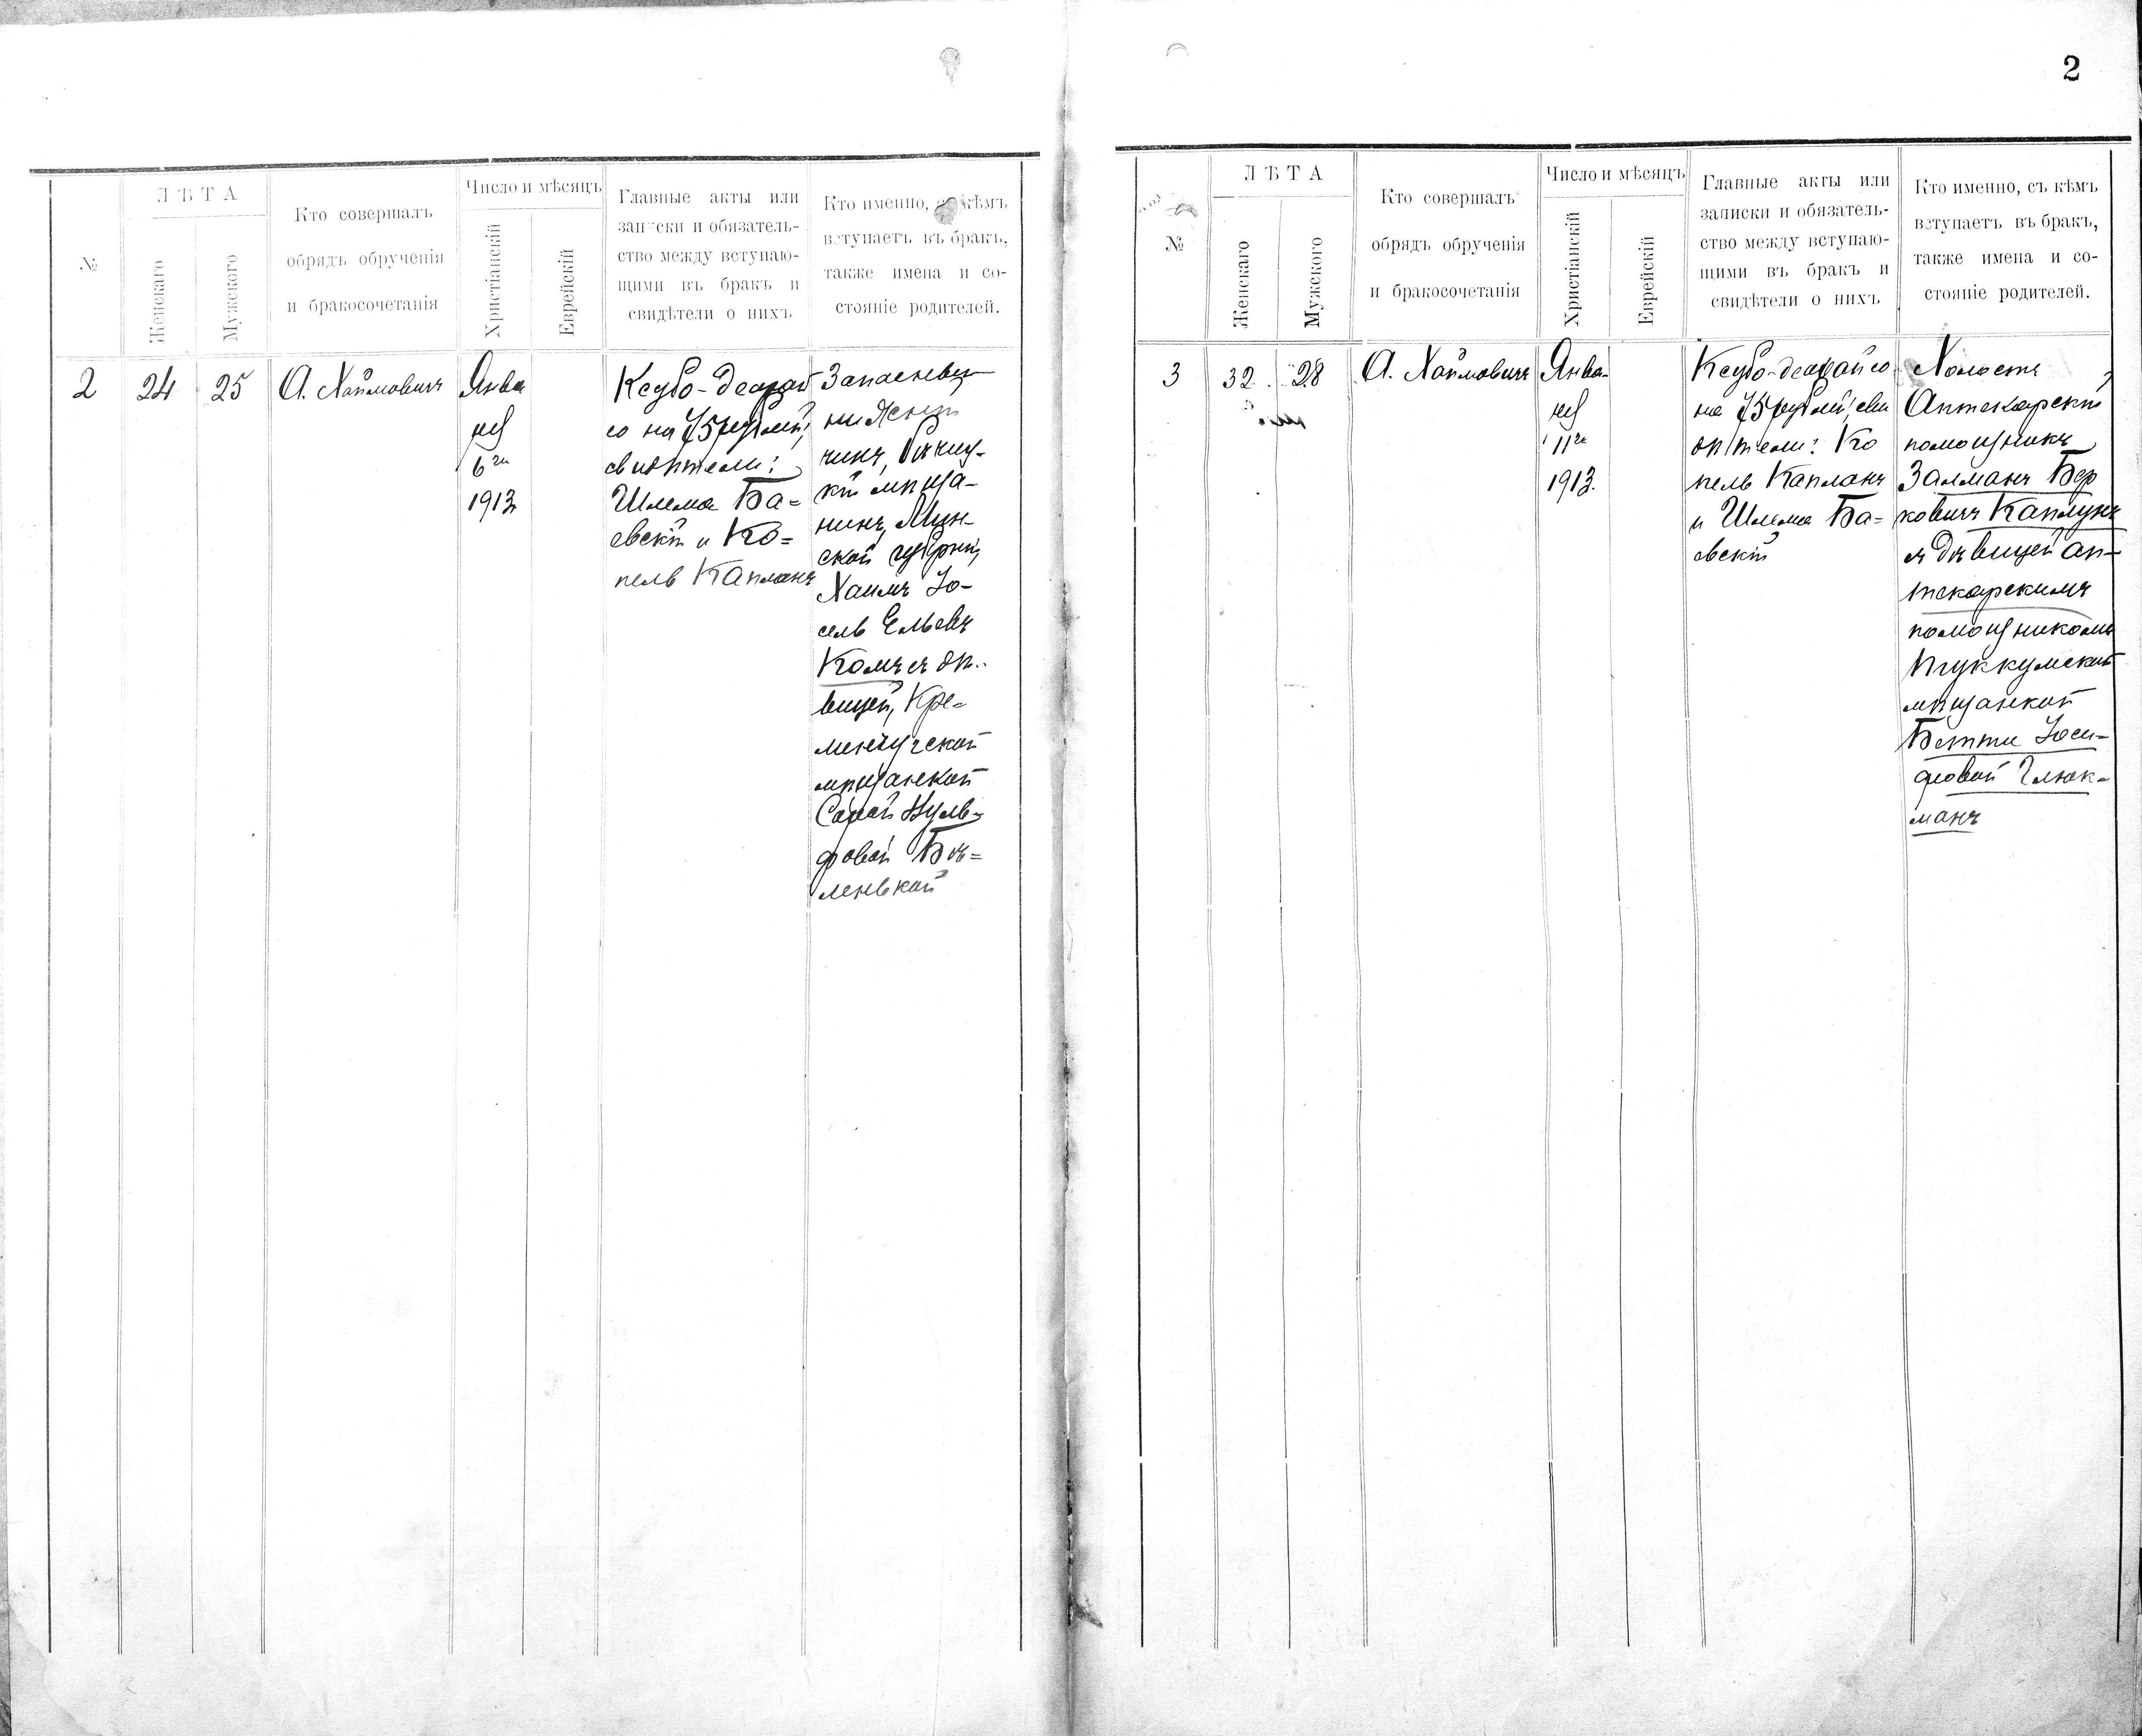 2
№
ЛѢТА
Женскаго
Мужского
Кто совершалъ
обрядъ обрученія
и бракосочетанія
Число и мѣсяцъ
Христіанскій
Еврейскій
Главные акты или
записки и обязатель-
ство между вступаю-
щими въ бракъ и
свидѣтели о нихъ
Кто именно, съ кѣмъ
вступаетъ въ бракъ,
также имена и со-
стояніе родителей.
2
24
25
А. Хаймовичъ
Янва
ря
6го
1913
Ксубо-деорай
со на 75 рублей;
свидѣтели:
Шлема Ба=
евскій и Ко=
пель Капланъ
Запасной
чикъ, Рѣчиц-
кій мѣща-
нинъ, Мин-
ской губерніи,
Хаимъ Іо-
сель Ельевъ
Комъ съ дѣ-
вицей, Кре-
менчугской
мѣщанкой
Сарой Вуль-
фовой Бѣ=
ленькой
№
ЛѢТА
Женскаго
Мужского
Кто совершалъ
обрядъ обрученія
и бракосочетанія
Число и мѣсяцъ
Христіанскій
Еврейскій
Главные акты или
записки и обязатель-
ство между вступаю-
щими въ бракъ и
свидѣтели о нихъ
Кто именно, съ кѣмъ
вступаетъ въ бракъ,
также имена и со-
стояніе родителей.
3
32
28
А. Хаймовичъ
Янва-
ря
11го
1913.
Ксубо-деорайсо
на 75 рублей; сви
дѣтели: Ко
пель Капланъ
и Шлема Ба=
евскій
Холостъ
Аптекарскій
помощникъ
Залманъ Бер
ковичъ Каплунъ
съ дѣвицей ап-
текарскимъ
помощникомъ
Туккумской
мѣщанкой
Бетти Іоси-
фовой Глюк-
манъ